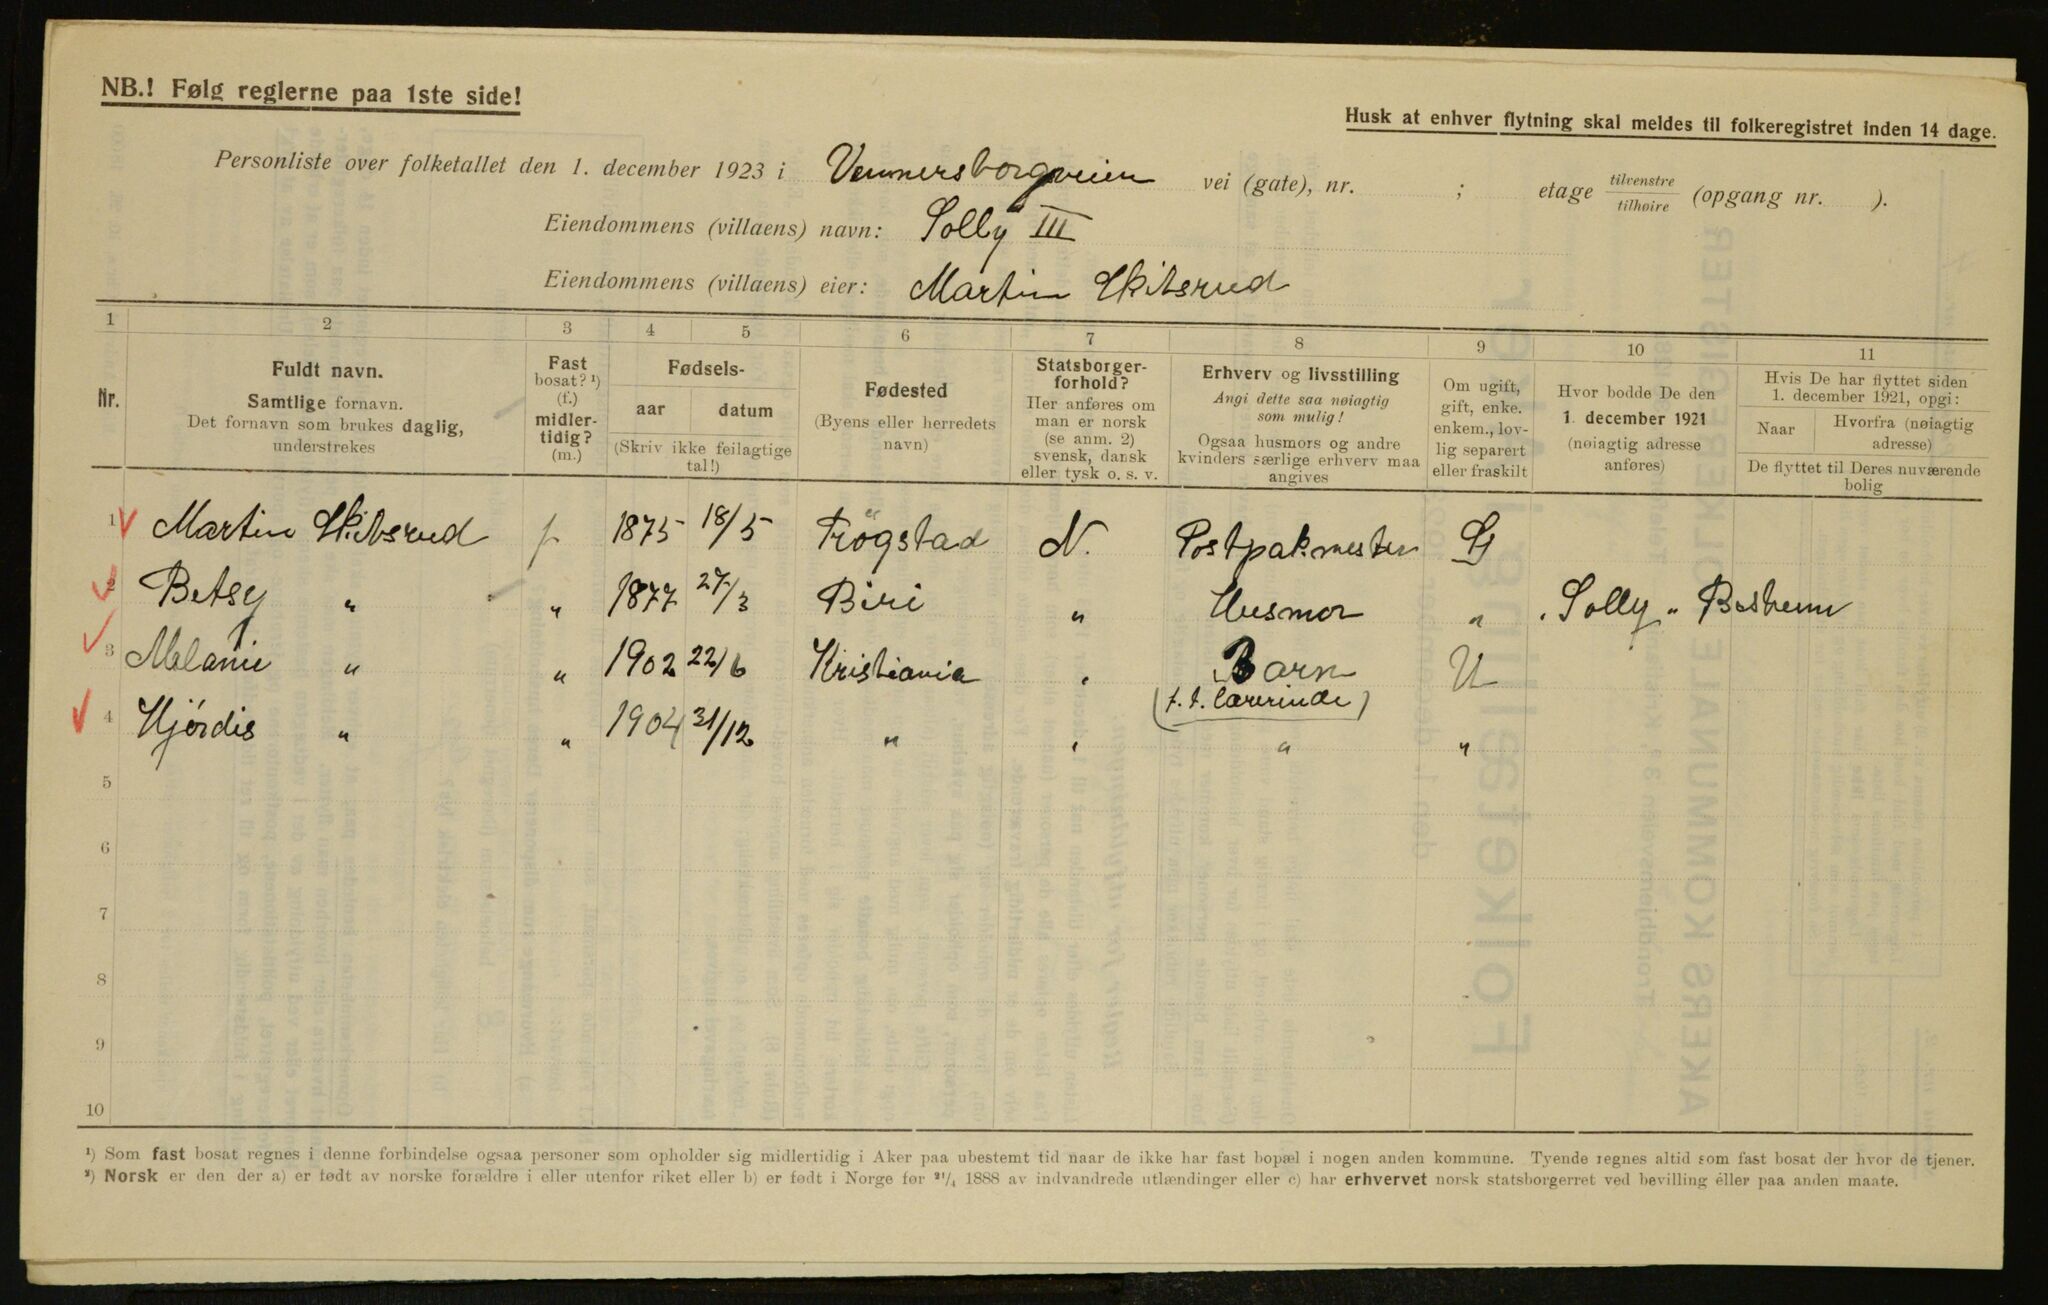 NB.! Følg reglerne paa 1ste side!
Husk at enhver flytning skal meldes til folkeregistret inden 14 dage.
Personliste over folketallet den 1. december 1923 i Vennersborgveien vei (gate), nr. ; etage tilvenstre/tilhøire (opgang nr. ).
Eiendommens (villaens) navn: Solly III
Eiendommens (villaens) eier: Martin Skitsrud
1 2 3 4 5 6 7 8 9 10 11
Nr.
Fuldt navn.
Samtlige fornavn.
Det fornavn som brukes daglig,
understrekes
Fast
bosat? ¹)
(f.)
midler-
tidig?
(m.)
Fødsels-
aar datum
(Skriv ikke feilagtige
tal!)
Fødested
(Byens eller herredets
navn)
Statsborger-
forhold?
Her anføres om
man er norsk
(se anm. 2)
svensk, dansk
eller tysk o. s. v.
Erhverv og livsstilling
Angi dette saa nøiagtig
som mulig!
Ogsaa husmors og andre
kvinders særlige erhverv maa
angives
Om ugift,
gift, enke.
enkem., lov-
lig separert
eller fraskilt
Hvor bodde De den
1. december 1921
(nøiagtig adresse
anføres)
Hvis De har flyttet siden
1. december 1921, opgi:
Naar
Hvorfra (nøiagtig
adresse)
De flyttet til Deres nuværende
bolig
1 Martin Skitsrud f 1875 18/5 Trøgstad N. Postpakmester G
2 Betsy " " 1877 27/3 Biri " Husmor " "Solly" Bestum
3 Melanie " " 1902 22/6 Kristiania " Barn U
(f. t. Lærerinde)
4 Hjørdis " " 1904 31/12 " " " "
5
6
7
8
9
10
¹) Som fast bosat regnes i denne forbindelse ogsaa personer som opholder sig midlertidig i Aker paa ubestemt tid naar de ikke har fast bopæl i nogen anden kommune. Tyende regnes altid som fast bosat der hvor de tjener.
²) Norsk er den der a) er født av norske forældre i eller utenfor riket eller b) er født i Norge før 21/4 1888 av indvandrede utlændinger eller c) har erhvervet norsk statsborgerret ved bevilling eller paa anden maate.